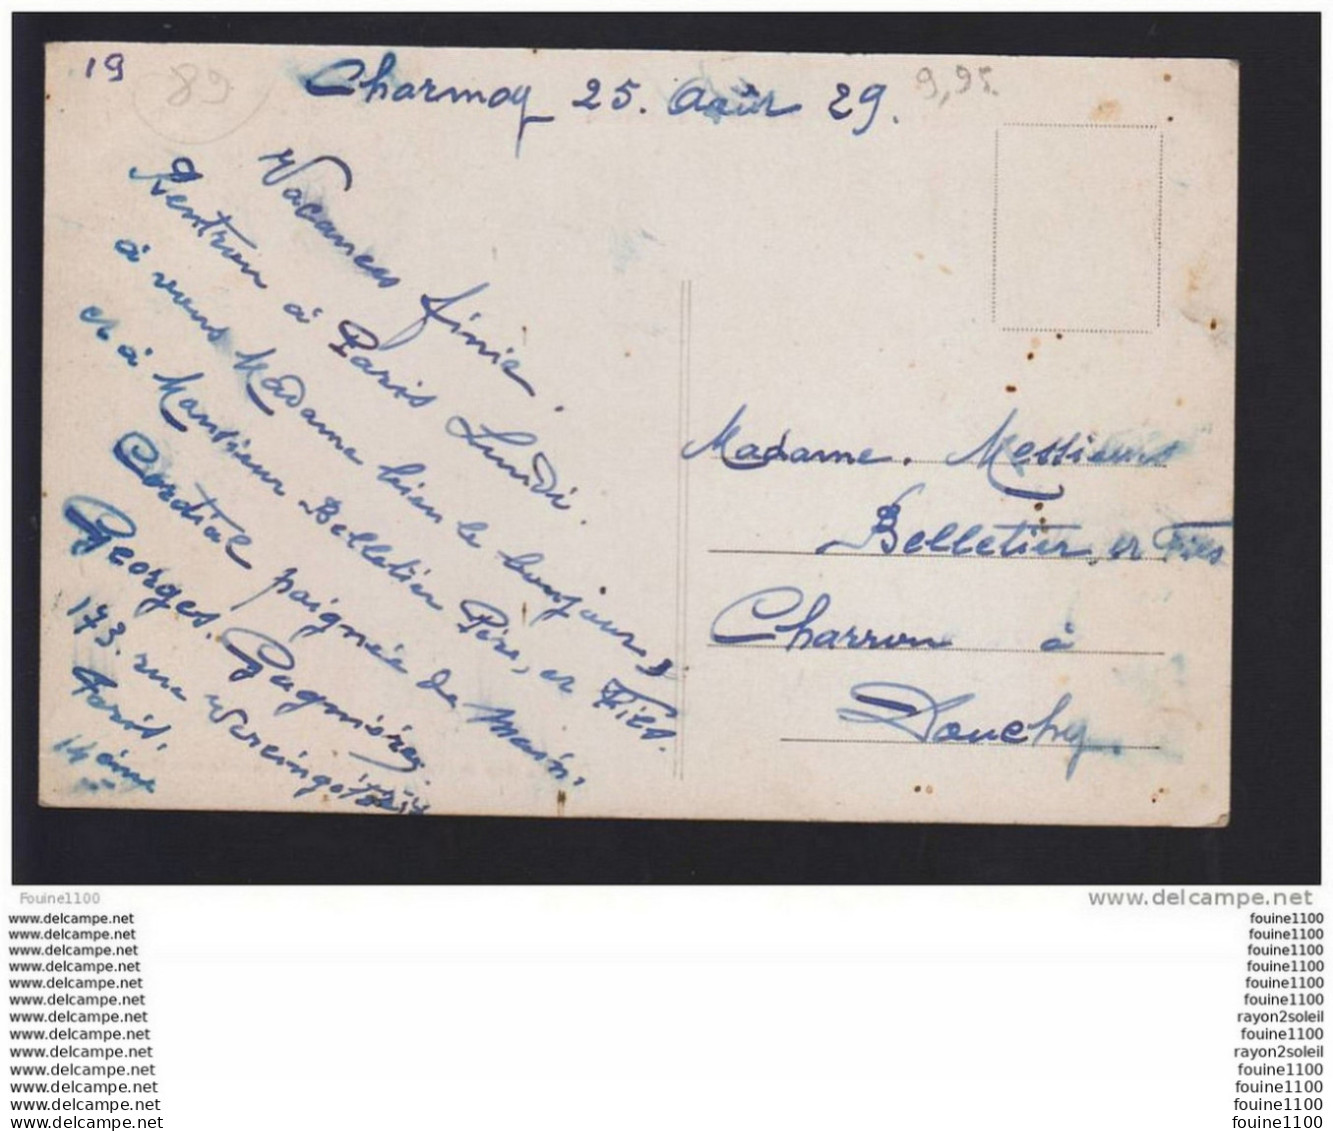 19
89
Charmoy 25. Août 29.
9,95
Vacances finie.
Rentron à Paris Lundi.
à vous Madame bien le bonjour &
et à Monsieur Belletier Père, et Fils.
Cordial poignée de main.
Georges. Gagnière
173. rue Vercingétorix
Paris.
14 ème
Madame. Messieurs
Belletier et Fils
Charron à
Douchy.
Fouine1100
www.delcampe.net
www.delcampe.net fouine1100
www.delcampe.net fouine1100
www.delcampe.net fouine1100
www.delcampe.net fouine1100
www.delcampe.net fouine1100
www.delcampe.net fouine1100
www.delcampe.net rayon2soleil
www.delcampe.net fouine1100
www.delcampe.net rayon2soleil
www.delcampe.net fouine1100
www.delcampe.net fouine1100
www.delcampe.net fouine1100
www.delcampe.net fouine1100